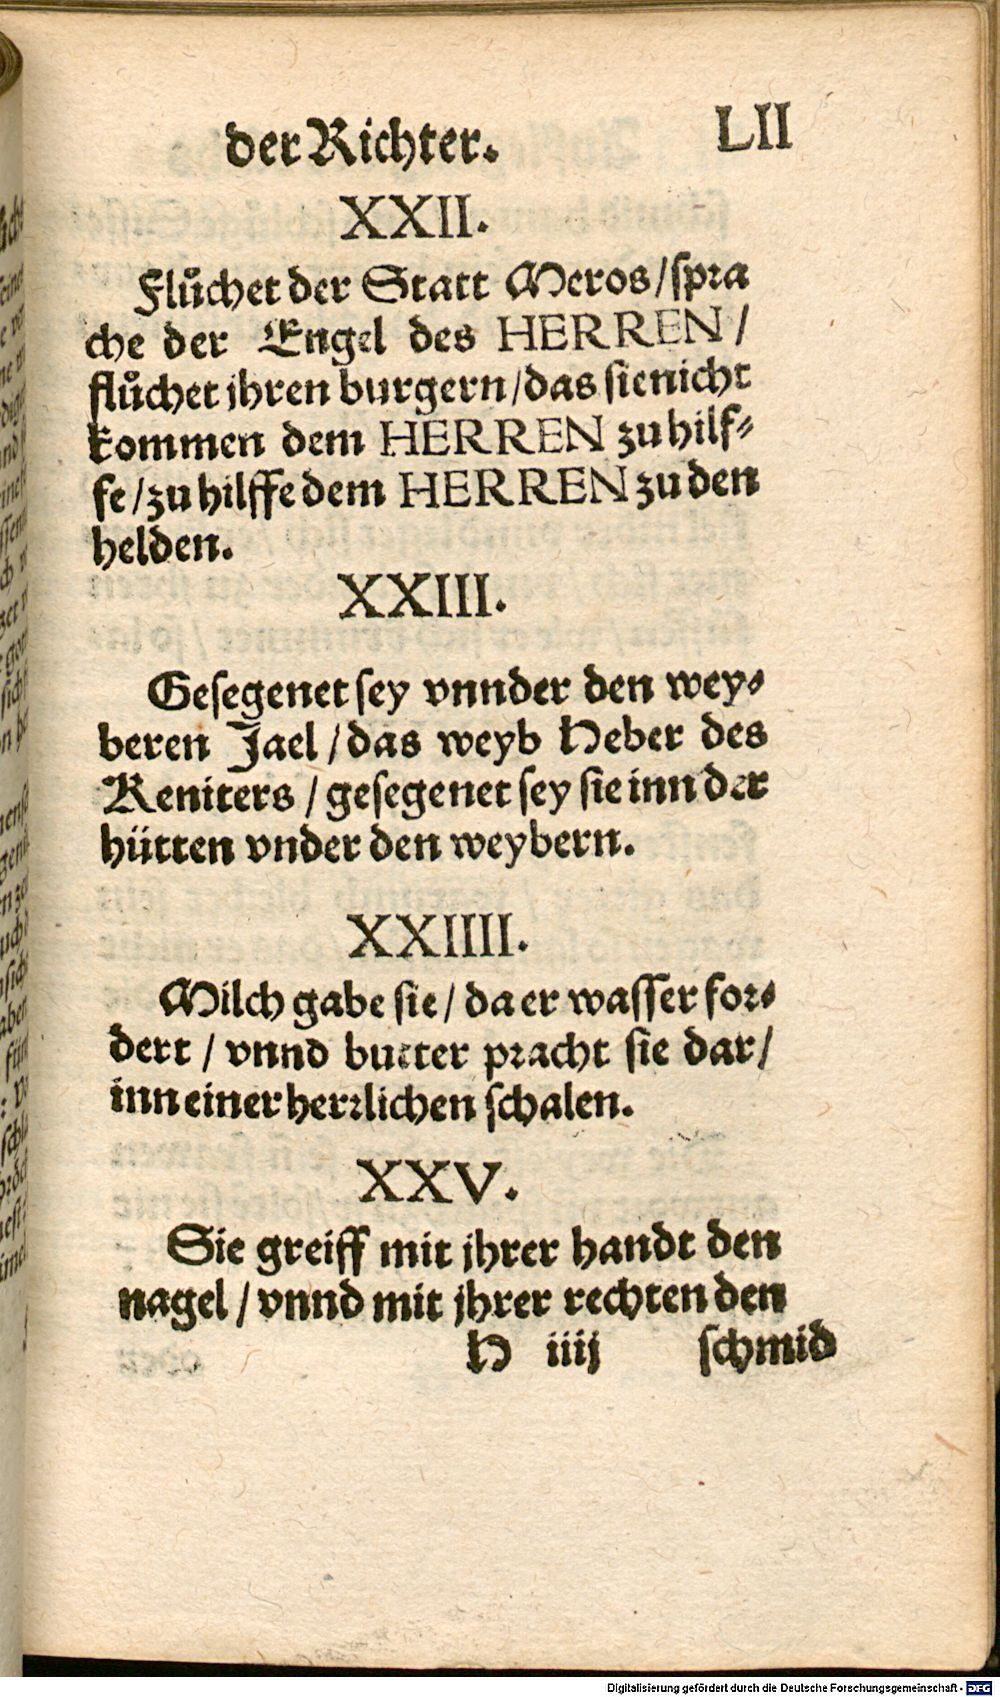 der Richter. LII
XXII.
Flůchet der Statt Meros/ spra
che der Engel des HERREN/
flůchet jhren burgern/ das sie nicht
kommen dem HERREN zu hilf⸗
fe/ zu hilffe dem HERREN zu den
helden.
XXIII.
Gesegenet sey vnnder den wey⸗
beren Jael/ das weyb Heber des
Keniters/ gesegenet sey sie inn der
hütten vnder den weybern.
XXIIII.
Milch gabe sie/ da er wasser for⸗
dert/ vnnd butter pracht sie dar/
inn einer herrlichen schalen.
XXV.
Sie greiff mit jhrer handt den
nagel/ vnnd mit jhrer rechten den
H iiij schmid
Digitalisierung gefördert durch die Deutsche Forschungsgemeinschaft - DFG